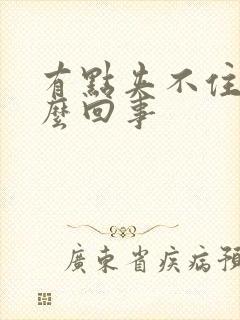 有點夾不住
麼回事
廣東省疾病預